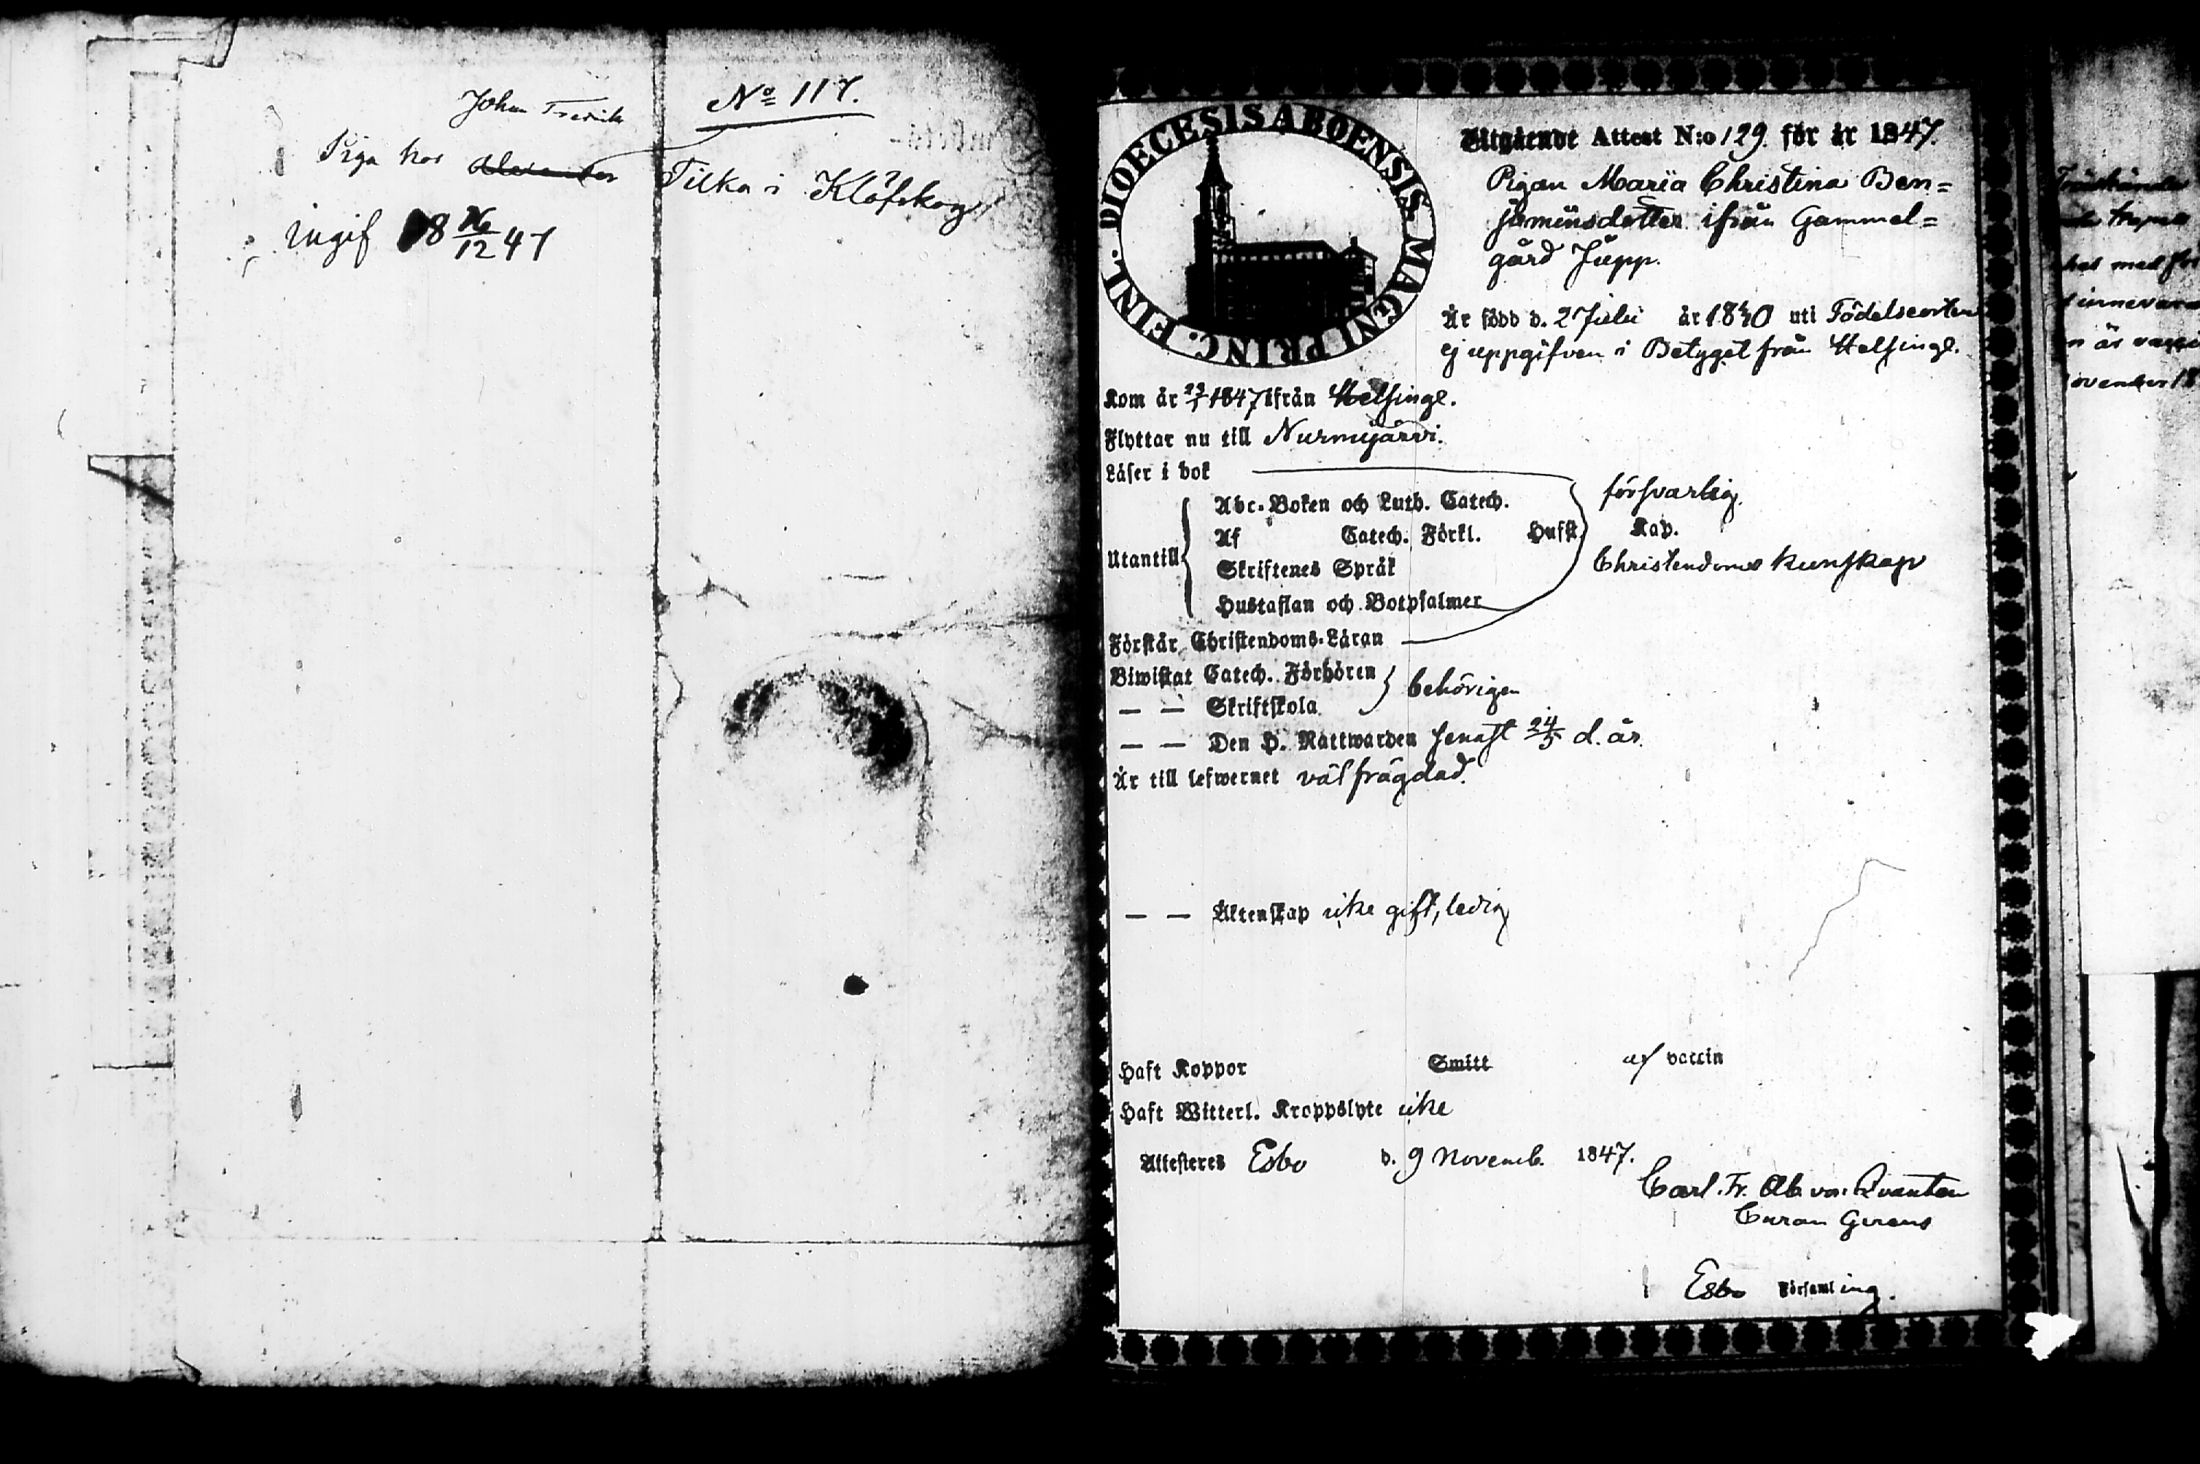 No 117.
Johan Fredrik
Piga hos Alexander Tilka i Klöfskog
ingif 18 16/12 47
DIOECESIS ABOENSIS MAGNI PRINC. FINL.
Utgående Attest N:o 129. för år 1847.
Pigan Maria Christina Ben=
jaminsdotter ifrån Gammel=
gård Jupp.
Är född d. 2 Julii år 18 uti Födelseorten
ej uppgifven i Betyget från Helsinge.
Kom år 1847 ifrån Helsinge.
Flyttar nu till Nurmijärvi.
Läser i bok
försvarlig
Utantill
Abc-Boken och Luth. Catech.
Af Catech. Förkl. Husst. Kap.
Skriftenes Språk
Christendoms kunskap
Hustaflan och Botpsalmer
Förstår Christendoms-Läran
Biwistat Catech. Förhören
— — Skriftskola
behörigen
— — Den H. Nattwarden senast 24/5 d. år.
Är till lefwernet välfrägdad.
— — Äktenskap icke gift, ledig
Haft Koppor Smitt af vaccin
Haft Witterl. Kroppslyte icke
Attesteras Esbo d. 9 Novemb. 1847.
Carl. Fr. Ab. von Qvanten
Curam Gerens
Esbo Församling.